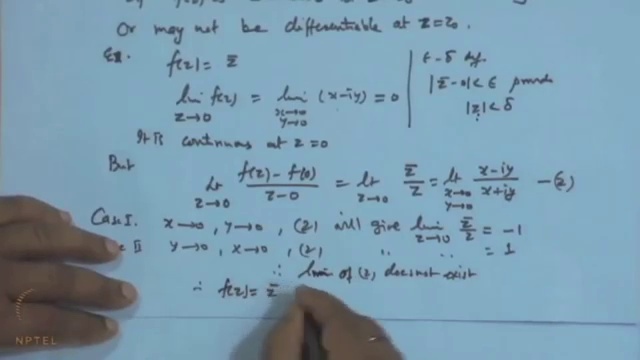 Or may not be differentiable at z=z₀.
Ex. f(z) = z̄
lim z→0 f(z) = lim x→0 y→0 (x-iy) = 0
ε-δ def.
|z̄-0|<ε provided
|z|<δ
It is continuous at z=0
But lt z→0 f(z)-f(0)/z-0 = lt z→0 z̄/z = lt x→0 y→0 x-iy/x+iy —(2)
Case I. x→0, y→0, (2) will give lim z→0 z̄/z = -1
II y→0, x→0, (2) " " = 1
∴ limit of (2) does not exist
∴ f(z) = z̄
NPTEL